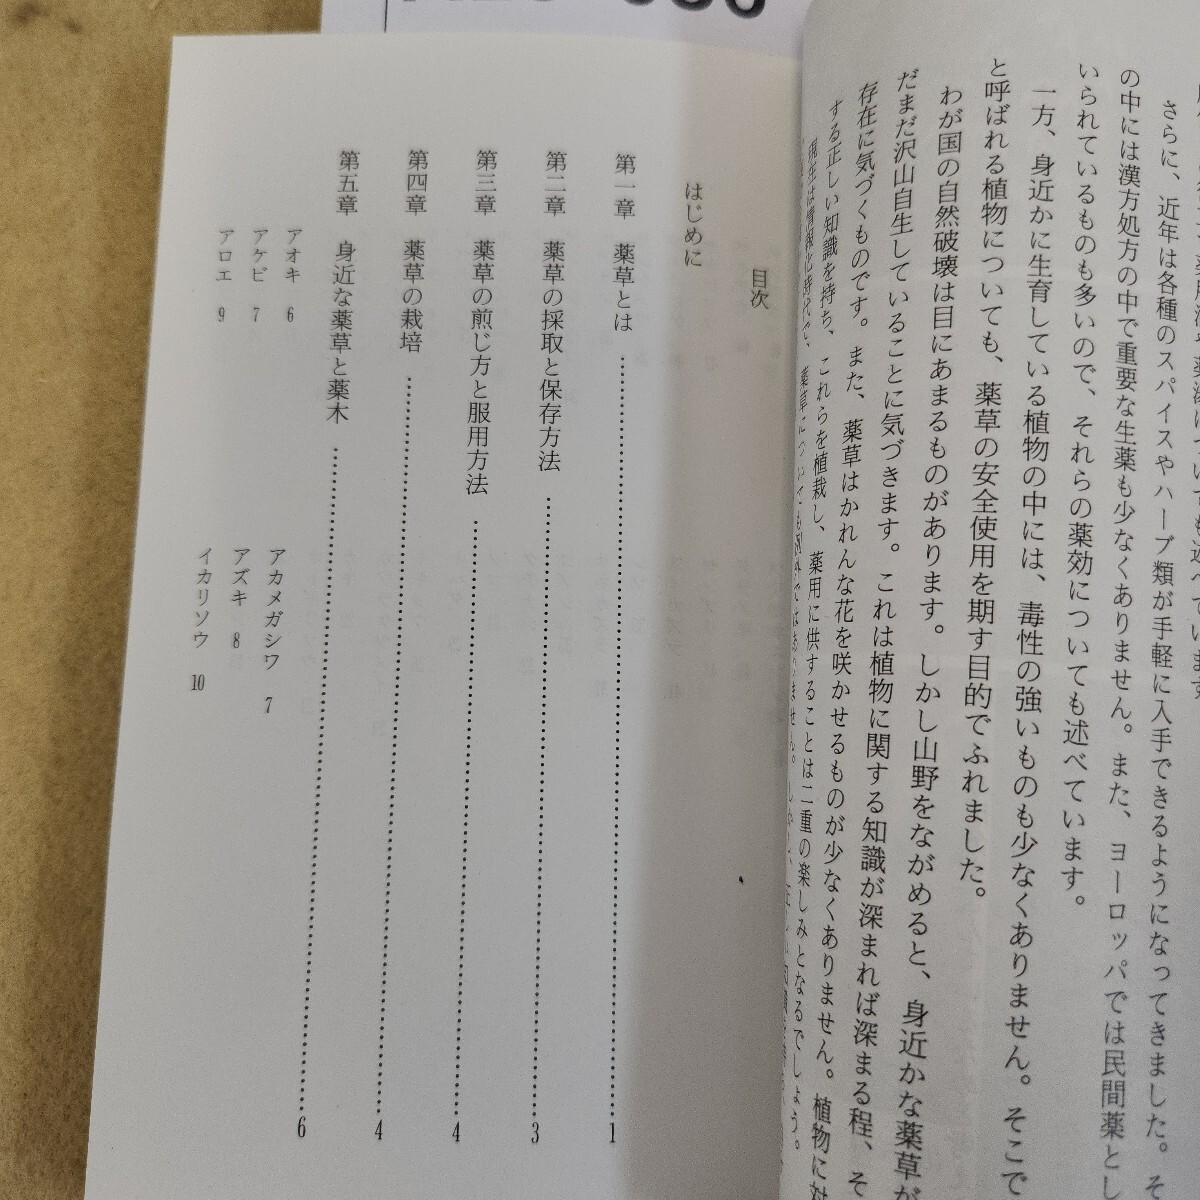 さらに、近年は各種のスパイスやハーブ類が手軽に入手できるようになってきました。そ
の中には漢方処方の中で重要な生薬も少なくありません。また、ヨーロッパでは民間薬とし
いられているものも多いので、それらの薬効についても述べています。
一方、身近かに生育している植物の中には、毒性の強いものも少なくありません。そこで
と呼ばれる植物についても、薬草の安全使用を期す目的でふれました。
わが国の自然破壊は目にあまるものがあります。しかし山野をながめると、身近かな薬草が
だまだ沢山自生していることに気づきます。これは植物に関する知識が深まれば深まる程、そ
存在に気づくものです。また、薬草はかれんな花を咲かせるものが少なくありません。植物に対
する正しい知識を持ち、これらを植栽し、薬用に供することは二重の楽しみとなるでしょう。
現在は情報化時代で、薬草についても例外ではありません。
目次
はじめに
第一章 薬草とは……1
第二章 薬草の採取と保存方法……3
第三章 薬草の煎じ方と服用方法……4
第四章 薬草の栽培……4
第五章 身近な薬草と薬木……6
アオキ 6
アカメガシワ 7
アケビ 7
アズキ 8
アロエ 9
イカリソウ 10